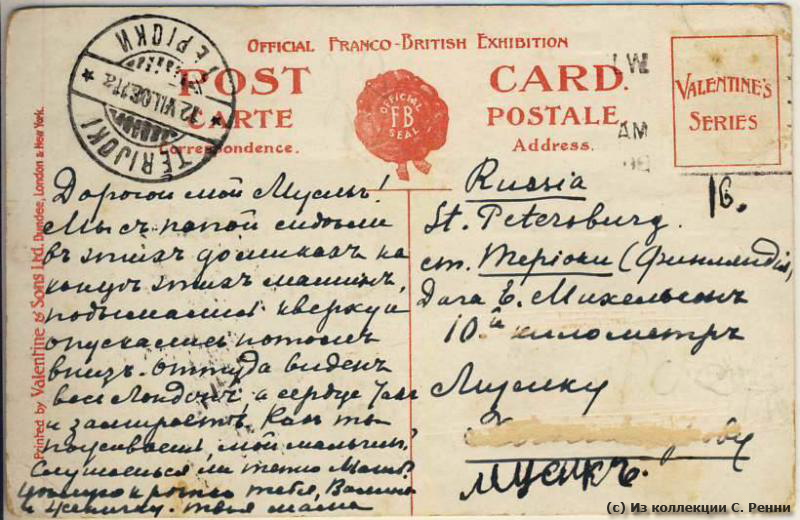 Official Franco-British Exhibition
POST CARD.
CARTE POSTALE
Correspondence. Address.
OFFICIAL
FB
SEAL
VALENTINE'S
SERIES
TERIJOKI
12.VII.08.
ТЕРІОКИ
AM
Printed by Valentine & Sons Ltd. Dundee, London & New York.
Дорогой мой Мусикъ!
Мы съ папой сидѣли
въ этихъ домикахъ на
концѣ этихъ машинъ,
подымались кверху и
опускались потомъ
внизъ. Оттуда виденъ
весь Лондонъ и сердце
и замираетъ. Какъ ты
поживаешь, мой мальчикъ?
Слушаешься ли тетю
Цѣлую крѣпко тебя,
и твоя мама
Russia
16.
St. Petersburg.
ст. Теріоки (Финляндія)
Дача Е. Михельсонъ
10й километръ
Мусику
МУСИКЪ.
(с) Из коллекции С. Ренни